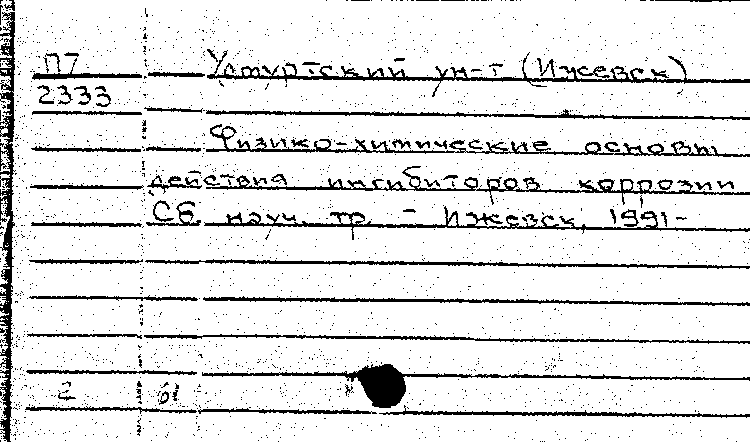 П7 Удмуртский ун-т (Ижевск)
2333
Физико-химические основы
действия ингибиторов коррозии
Сб. науч. тр. - Ижевск, 1991-
2 61